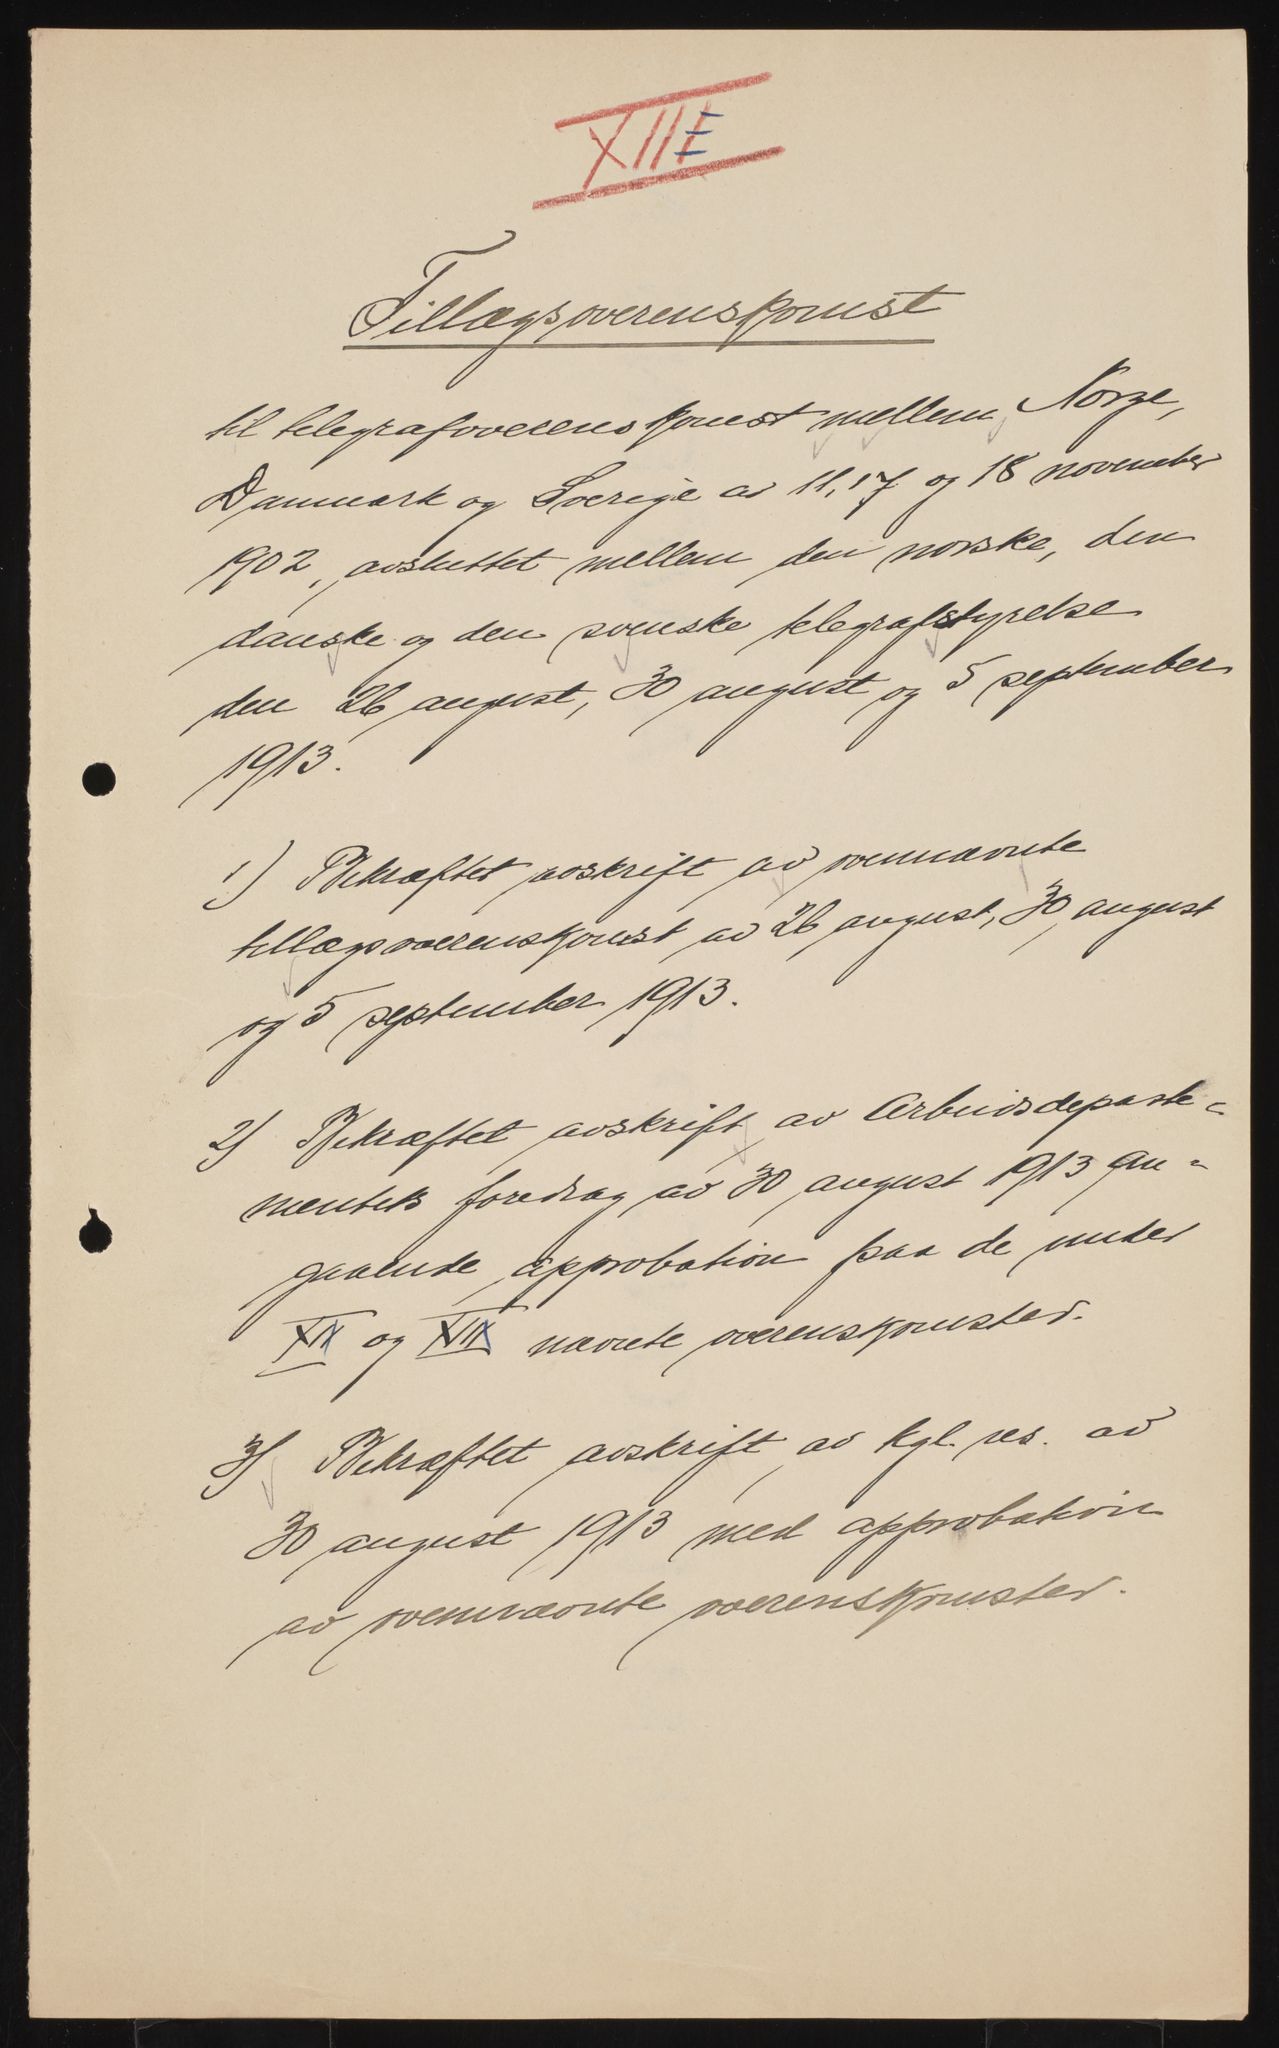 XIIE
Tillægsoverenskomst
til telegrafoverenskomst mellem Norge,
Danmark og Sverige av 11, 17 og 18 november
1902, avsluttet mellem den norske, den
danske og den svenske telegrafstyrelse
den 26 august, 30 august og 5 september
1913.
1) Bekræftet avskrift av ovennævnte
tillægsoverenskomst av 26 august, 30 august
og 5 september 1913.
2) Bekræftet avskrift av Arbeidsdeparte-
mentets foredrag av 30 august 1913 an-
gaaende approbation paa de under
og nævnte overenskomster.
3) Bekræftet avskrift av kgl. res. av
30 august 1913 med approbation
av ovennævnte overenskomster.